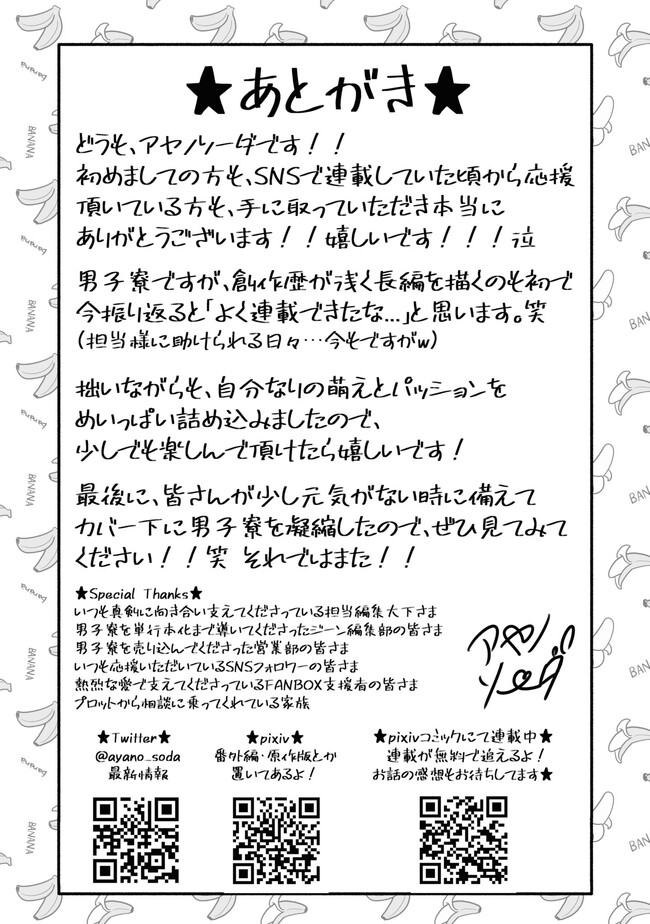 ★あとがき★
どうも、アヤノソーダです！！
初めましての方も、SNSで連載していた頃から応援
頂いている方も、手に取っていただき本当に
ありがとうございます！！嬉しいです！！！泣
男子寮ですが、創作歴が浅く長編を描くのも初で
今振り返ると「よく連載できたな…」と思います。笑
（担当様に助けられる日々…今もですがw）
拙いながらも、自分なりの萌えとパッションを
めいっぱい詰め込みましたので、
少しでも楽しんで頂けたら嬉しいです！
最後に、皆さんが少し元気がない時に備えて
カバー下に男子寮を凝縮したので、ぜひ見てみて
ください！！笑 それではまた！！
★Special Thanks★
いつも真剣に向き合い支えてくださっている担当編集大下さま
男子寮を単行本化まで導いてくださったジーン編集部の皆さま
男子寮を売り込んでくださった営業部の皆さま
いつも応援いただいているSNSフォロワーの皆さま
熱烈な愛で支えてくださっているFANBOX支援者の皆さま
プロットから相談に乗ってくれている家族
アヤノ
ソーダ
★Twitter★
@ayano_soda
最新情報
★pixiv★
番外編・原作版とか
置いてあるよ！
★pixivコミックにて連載中★
連載が無料で追えるよ！
お話の感想もお待ちしてます★
BANANA
BANANA
BANANA
BANANA
BANANA